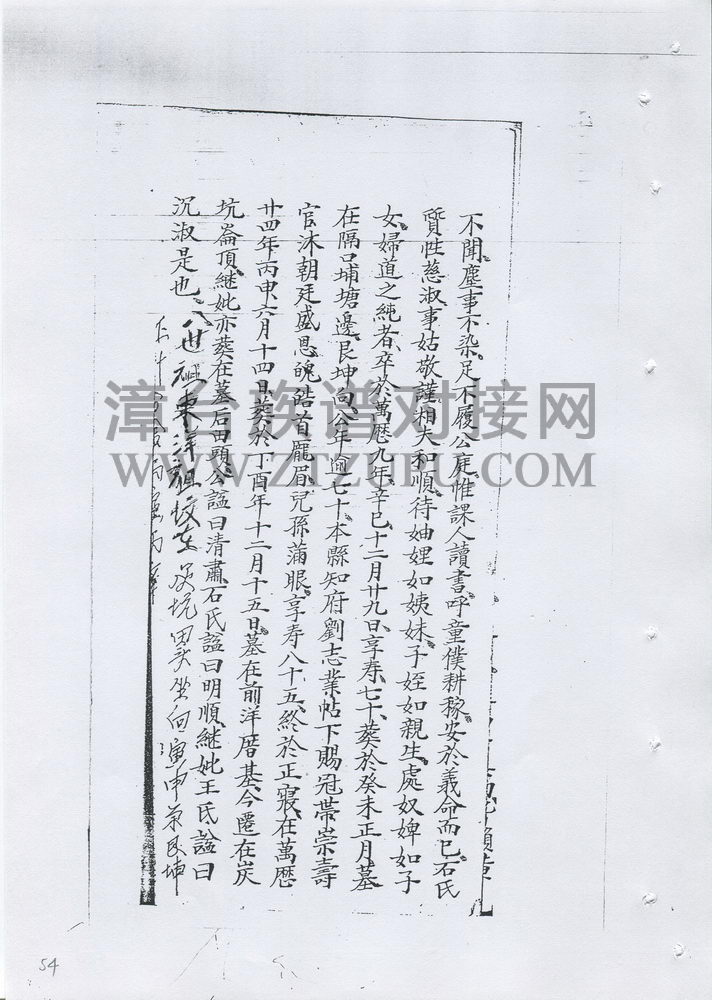 不聞塵事不染足不履公庭惟課人讀書呼童僕耕稼安於義命而已石氏
質性慈淑事姑敬謹相夫和順待妯娌如姨妹子姪如親生處奴婢如子
女婦道之純者卒於萬歷九年辛巳十二月廿九日享寿七十葬於癸未正月墓
在隔口埔塘邊艮坤向公年逾七十本縣知府劉志業帖下賜冠帶崇壽
官沐朝廷盛恩皤皓首龐眉兒孫蒲眼享寿八十五終於正寢在萬歷
廿四年丙申六月十四日葬於丁酉年十二月十五日墓在前洋厝基今遷在炭
坑崙頂継妣亦葬在墓后田頭公諡曰清肅石氏諡曰明順継妣王氏諡曰
沉淑是也八世祖東洋祖坟在炭坑坐向寅申兼艮坤
漳台族谱对接网
WWW.ZTZUPU.COM
54